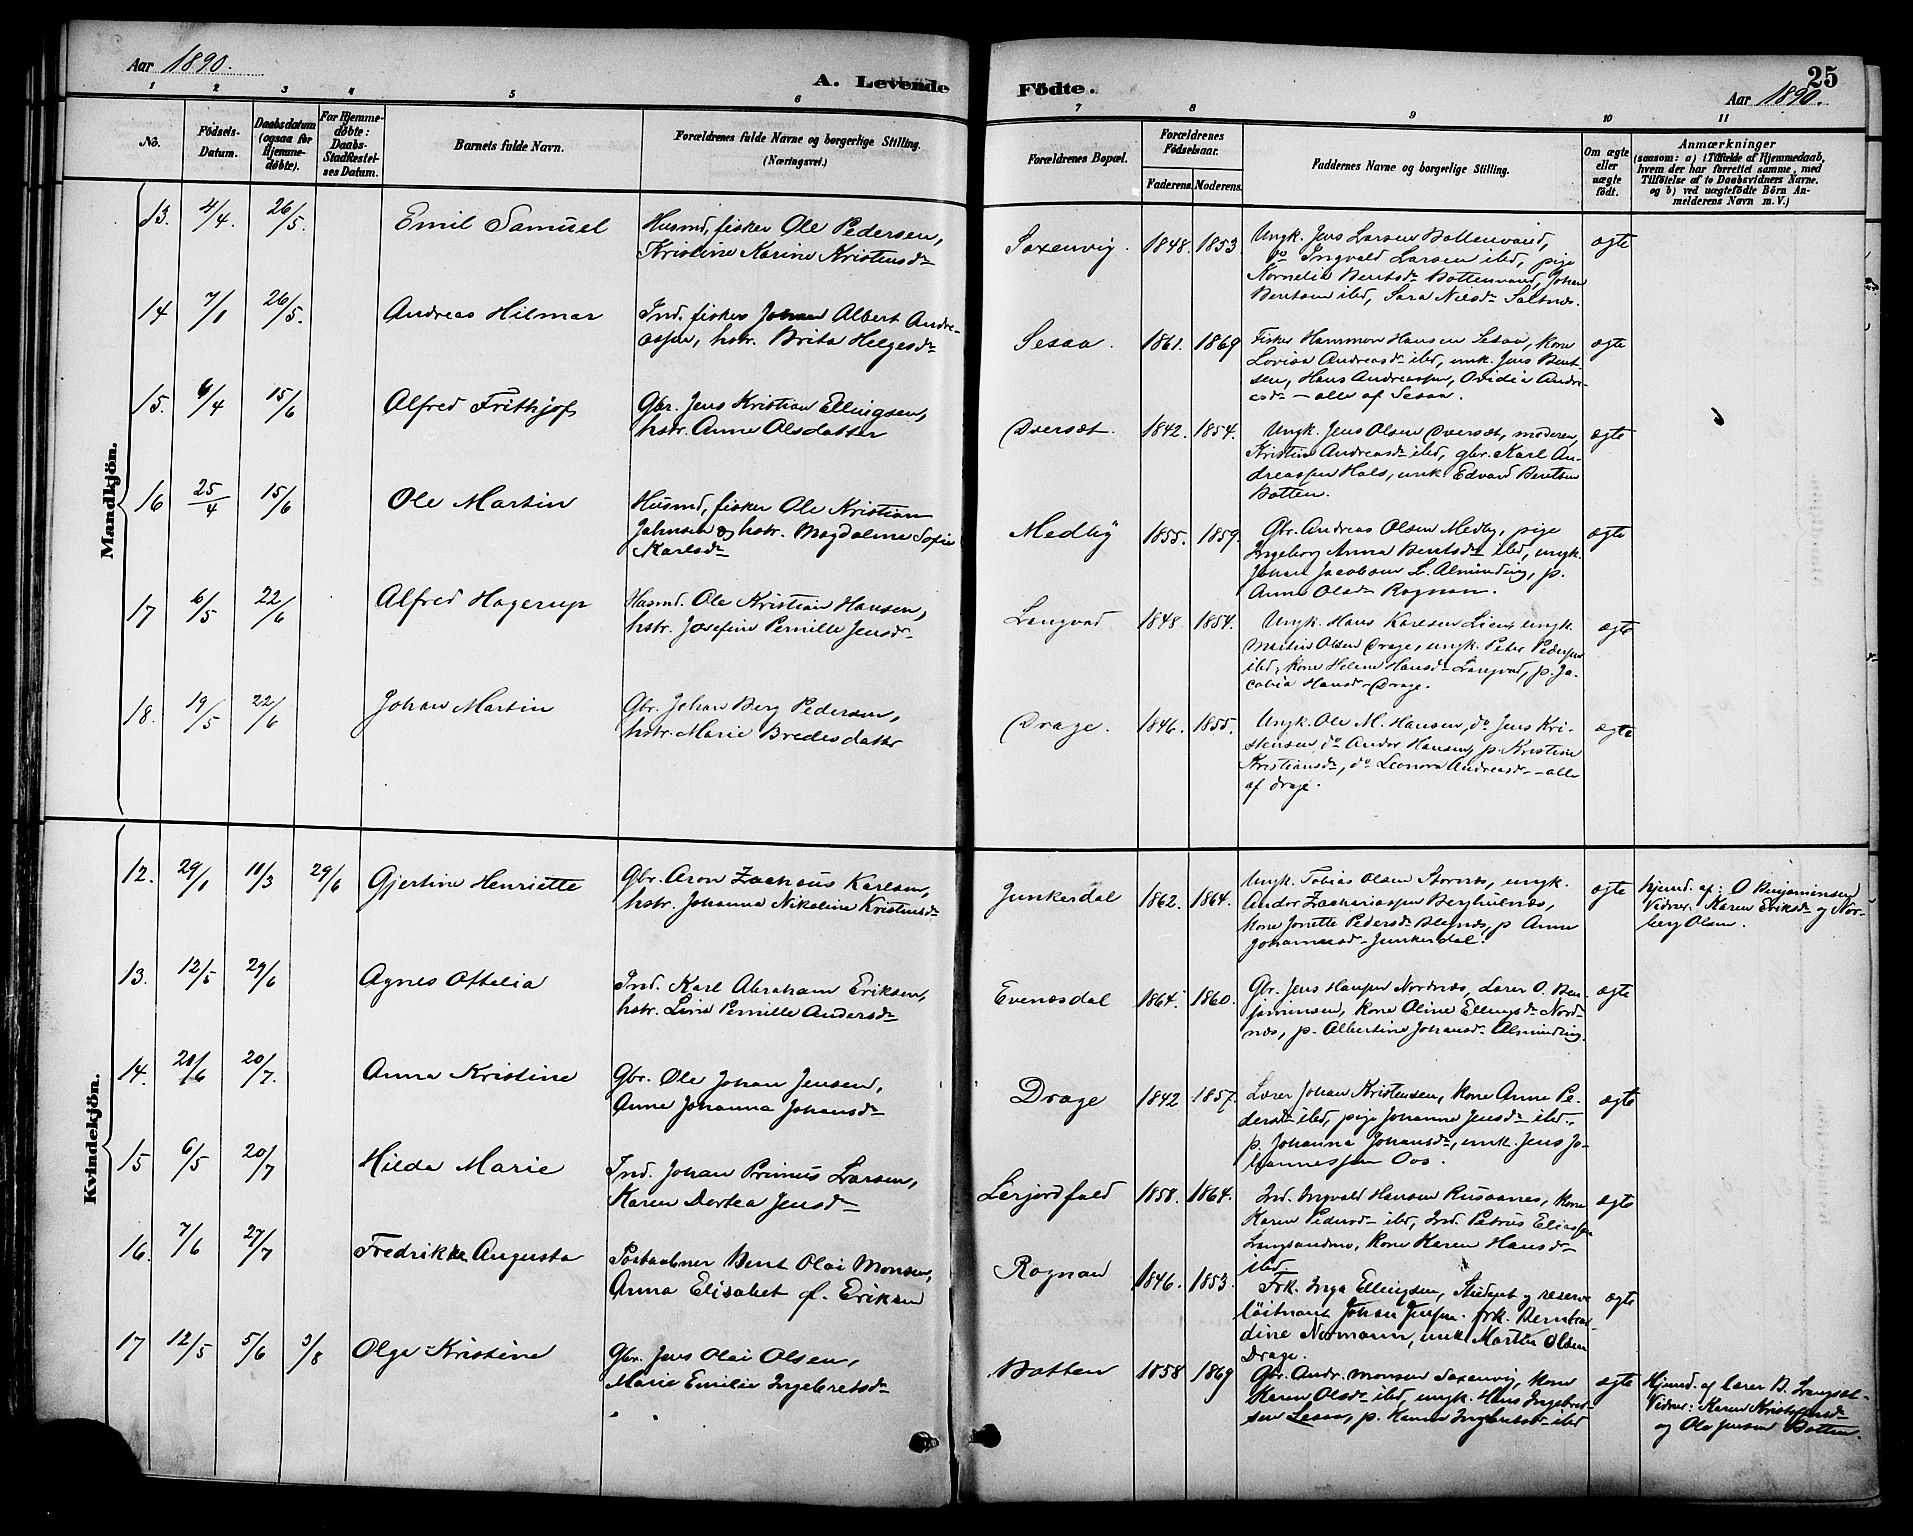 Aar 1890.
A. Levende
1 2 3 4 5 6
No.
Fødsels-
Datum.
Daabsdatum
(ogsaa for
Hjemme-
døbte).
For Hjemme-
døbte:
Daabs-
Stadfæstel-
ses Datum.
Barnets fulde Navn.
Forældrenes fulde Navne og borgerlige Stilling.
(Næringsvei.)
Mandkjön.
13. 4/4. 26/5. Emil Samuel
Husmd, fisker Ole Pedersen,
Kristine Karine Kristensdr
14 7/1 26/5. Andreas Hilmar
Ind. fisker Johan Albert Andre-
assen, hstr. Brita Helgesdr
15. 6/4 15/6 Alfred Frithjof
Gbr. Jens Kristian Ellingsen,
hstr. Anne Olsdatter
16 25/4 15/6 Ole Martin
Husmd, fisker Ole Kristian
Johnsen og hstr. Magdalene Sofie
Karlsdr
17 6/5 22/6 Alfred Hagerup
Husmd. Ole Kristian Hansen,
hstr. Josefine Pernille Jensdr
18. 19/5 22/6 Johan Martin
Gbr. Johan Berg Pedersen,
hstr. Marie Bredesdatter
Kvindekjön.
12. 29/1 11/3 29/6 Gjertine Henriette
Gbr. Aron Zachæus Karlsen,
hstr. Johanna Nikoline Kristensdr
13. 12/5 29/6 Agnes Oftelia
Ind. Karl Abraham Eriksen,
hstr. Lina Pernille Andersdr
14. 20/6 20/7. Anna Kristine
Gbr. Ole Johan Jensen,
Anne Johanna Johansdr
15 6/5 20/7 Hilda Marie
Ind. Johan Primus Larsen,
Karen Dortea Jensdr
16. 7/6 27/7 Fredrikke Augusta
Postaabner Bent Olai Monsen,
Anna Elisabet f. Eriksen
17 12/5 5/6 3/8 Olga Kristine
Gbr. Jens Olai Olsen,
Marie Emilie Ingebretsdr
25
Födte.
Aar 1890.
7 8 9 10 11
Forældrenes Bopæl.
Forældrenes
Fødselsaar.
Faderens. Moderens.
Faddernes Navne og borgerlige Stilling.
Om ægte
eller
uægte
født.
Anmærkninger
(saasom: a) i Tilfælde af Hjemmedaab,
hvem der har forrettet samme, med
Tilføielse af to Daabsvidners Navne.
og b) ved uægtefødte Børn An-
melderens Navn m. V.)
Saxenvig. 1848. 1853.
Ungk. Jens Larsen Bottenvand,
do Ingvald Larsen ibd, pige
Kornelia Bentsdr Bottenvand, Johan
Bentsen ibd, Sara Nilsdr Saltnes.
ægte
Sesaa. 1861. 1869
Fisker Hammon Hansen Sesaa, kone
Lovisa Andreasdr ibd, unk. Jens Bent-
sen, Hans Andreassen, Ovidia Andre-
asdr - alle af Sesaa.
ægte
Dversæt. 1842. 1854.
Ungk. Jens Olsen Dversæt, moderen,
Kristine Andreasdr ibd, gbr. Karl An-
dreassen Hals, unk. Edvard Bentsen
Botten.
ægte
Medby 1855. 1859.
Gbr. Andreas Olsen Medby, pige
Ingeborg Anna Bentsdr ibd, ungk.
Johan Jacobsen L. Alminding, p.
Anne Olsdr Rognan.
ægte
Langvad 1848. 1854.
Ungk. Hans Karlsen Lien, ungk.
Martin Olsen Drage, ungk. Peter Pedersen
ibd, kone Helene Hansdr Langvad, p. Ja-
cobia Hansdr Drage.
ægte
Drage. 1846. 1855.
Ungk. Ole M. Hansen, do Jens Kri-
stensen, do Andor Hansen, p. Kristine
Kristiansdr, do Leonora Andreasdr - alle
af Drage.
ægte
Junkerdal 1862. 1864.
Ungk. Tobias Olsen Storнæs, ungk.
Andor Zachariassen Berghulnæs,
kone Jorette Pedersdr, p Anne
Johannesdr Junkerdal.
ægte
hjemd. af: O Benjaminsen
Vidner: Karen Eriksdr og Nor-
berg Olsen.
Evenæsdal 1864. 1860.
Gbr. Jens Hansen Nordnæs, Lærer O. Ben-
jaminsen, kone Oline Ellingsdr Nord-
næs, p. Albertine Johansdr Almindring.
ægte
Drage 1842 1857.
Lærer Johan Kristensen, kone Anne Pe-
dersdr ibd, pige Johanna Jensdr ibd.,
p. Johanna Johansdr, unk. Jens Jo-
hannessen Oos.
ægte
Lerjordfald 1858. 1864.
Ind. Ingvald Hansen Rusaanes, kone
Karen Pedersdr ibd, Ind. Petrus Eliassen
Langsandmo, kone Karen Hansdr
ibd
ægte
Rognan 1846. 1853.
Frk. Inga Ellingsen, Student og reserve
løitnant Johan Jensen. frk. Bernhar-
dine Normann, unk. Martin Olsen
Drage.
ægte
Botten 1858 1869
Gbr. Andr. Monsen Saxenvig, kone
Karen Olsdr ibd, ungk. Hans Ingebret-
sen Lesaa, p. Hanna Ingebretsdr ibd
ægte
Hjemd. af lærer B. Langset-
Vidner: Karen Kristensdr
og Ole Jensen Botten.